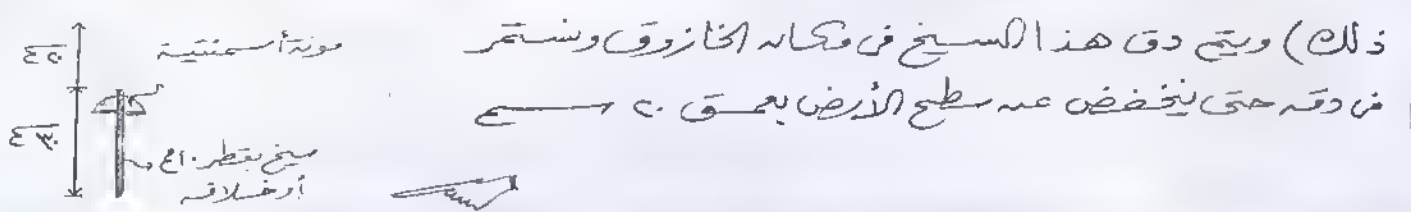 ذلك) ويتم دق هذا السيخ في مكان الخازوق ونستمر
في دقه حتى ينخفض عن سطح الأرض بعمق ٢٠ سم
مونة أسمنتية
سيخ بقطر ١٠مم
أو خلافه